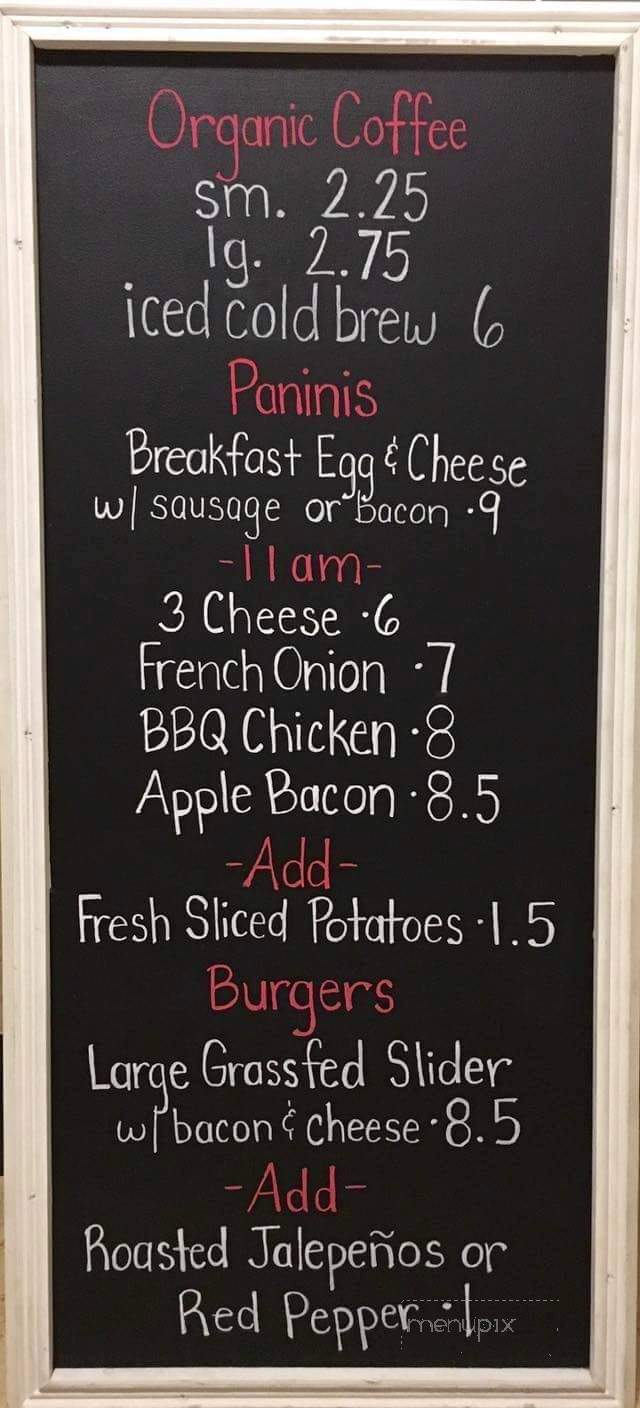 Organic Coffee
sm. 2.25
lg. 2.75
iced cold brew 6
Paninis
Breakfast Egg & Cheese
w/ sausage or bacon ·9
-11am-
3 Cheese ·6
French Onion ·7
BBQ Chicken ·8
Apple Bacon ·8.5
-Add-
Fresh Sliced Potatoes ·1.5
Burgers
Large Grassfed Slider
w/ bacon & cheese ·8.5
-Add-
Roasted Jalepeños or
Red Pepper ·1
menupix